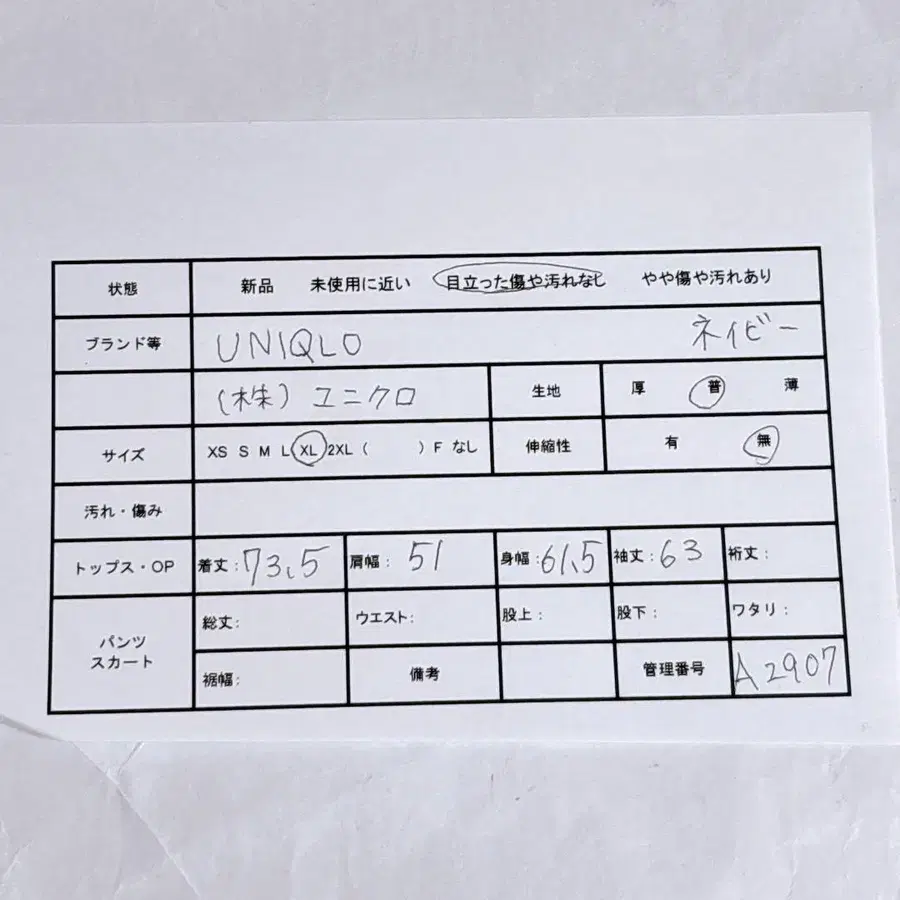 状態 新品 未使用に近い 目立った傷や汚れなし やや傷や汚れあり
ブランド等 UNIQLO ネイビー
(株) ユニクロ 生地 厚 普 薄
サイズ XS S M L XL 2XL ( ) F なし 伸縮性 有 無
汚れ・傷み
トップス・OP 着丈:73.5 肩幅:51 身幅:61.5 袖丈:63 裄丈:
パンツ スカート 総丈: ウエスト: 股上: 股下: ワタリ:
裾幅: 備考 管理番号 A2907